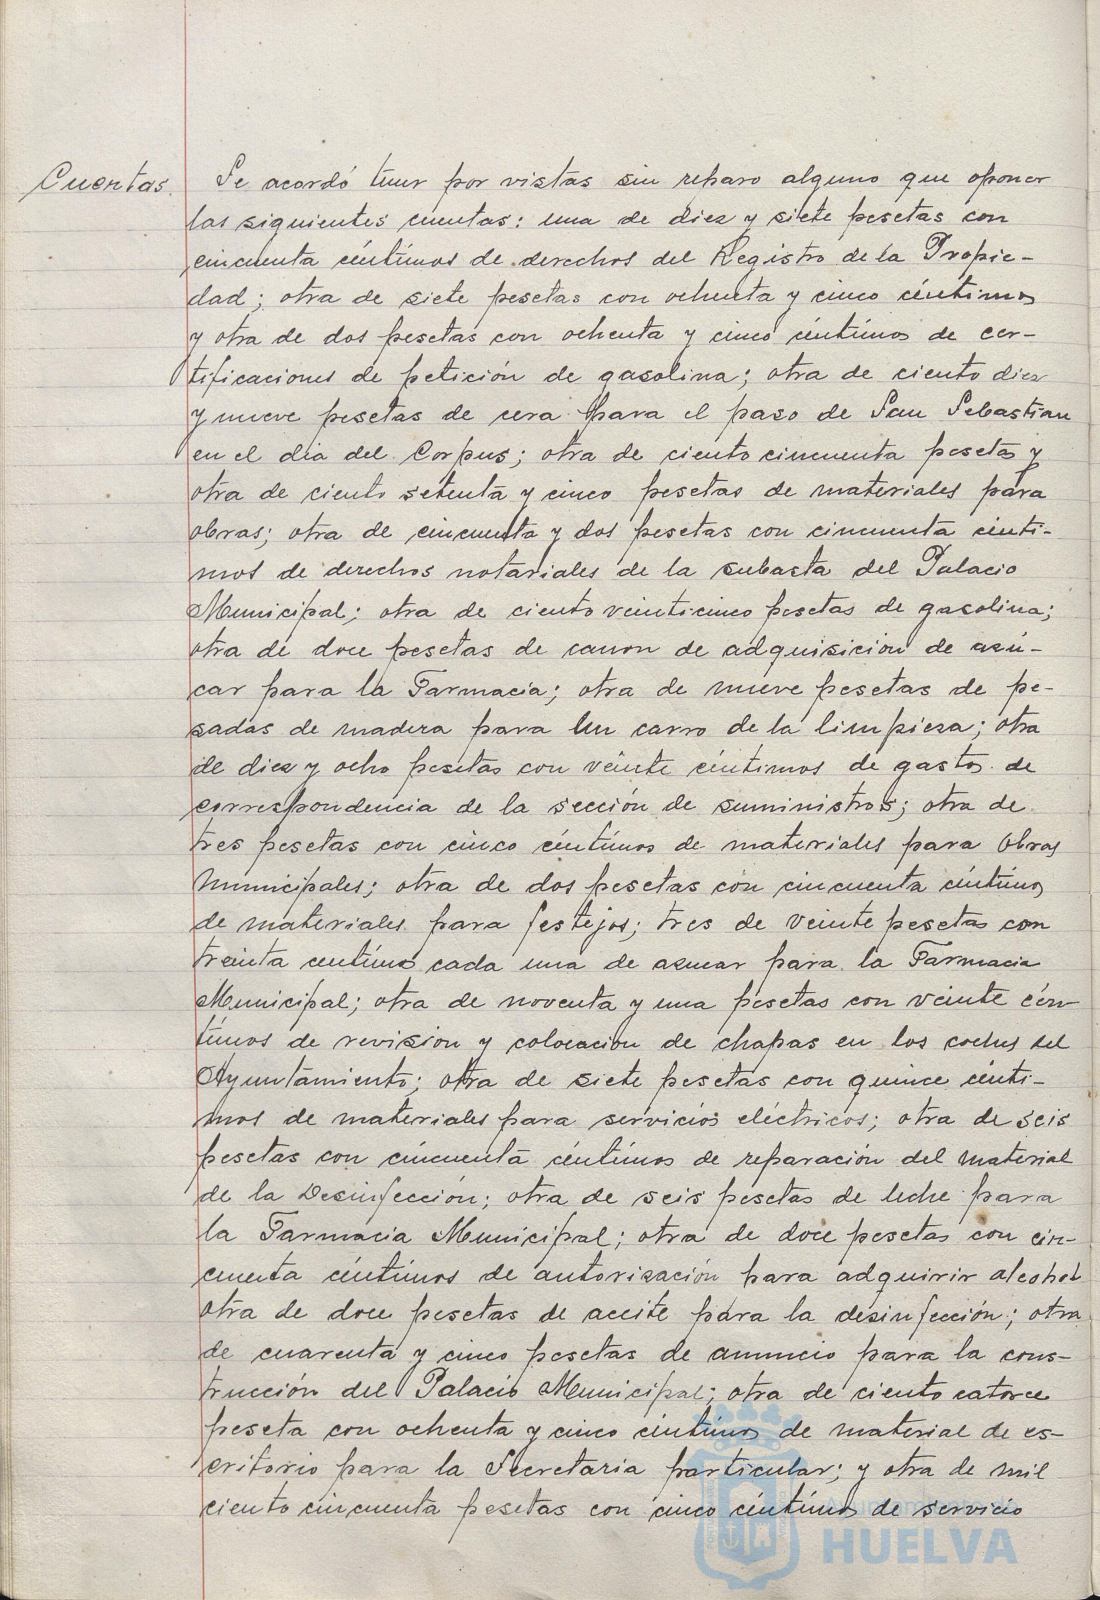 Cuentas.
Se acordó tener por vistas sin reparo alguno que oponer
las siguientes cuentas: una de diez y siete pesetas con
cincuenta céntimos de derechos del Registro de la Propie-
dad; otra de siete pesetas con ochenta y cinco céntimos
y otra de dos pesetas con ochenta y cinco céntimos de cer-
tificaciones de petición de gasolina; otra de ciento diez
y nueve pesetas de cera para el paso de San Sebastian
en el dia del Corpus; otra de ciento cincuenta pesetas y
otra de ciento setenta y cinco pesetas de materiales para
obras; otra de cincuenta y dos pesetas con cincuenta cénti-
mos de derechos notariales de la subasta del Palacio
Municipal; otra de ciento veinticinco pesetas de gasolina;
otra de doce pesetas de canon de adquisición de azú-
car para la Farmacia; otra de nueve pesetas de pe-
sadas de madera para un carro de la limpieza; otra
de diez y ocho pesetas con veinte céntimos de gastos de
correspondencia de la sección de suministros; otra de
tres pesetas con cinco céntimos de materiales para Obras
Municipales; otra de dos pesetas con cincuenta céntimos
de materiales para festejos; tres de veinte pesetas con
treinta centimos cada una de azucar para la Farmacia
Municipal; otra de noventa y una pesetas con veinte cén-
timos de revision y colocacion de chapas en los coches del
Ayuntamiento; otra de siete pesetas con quince cénti-
mos de materiales para servicios eléctricos; otra de seis
pesetas con cincuenta céntimos de reparación del material
de la Desinfección; otra de seis pesetas de leche para
la Farmacia Municipal; otra de doce pesetas con cin-
cuenta céntimos de autorización para adquirir alcohol
otra de doce pesetas de aceite para la desinfección; otra
de cuarenta y cinco pesetas de anuncio para la cons-
trucción del Palacio Municipal; otra de ciento catorce
peseta con ochenta y cinco céntimos de material de es-
critorio para la Secretaria particular; y otra de mil
ciento cincuenta pesetas con cinco céntimos de servicio
Ayuntamiento de
HUELVA